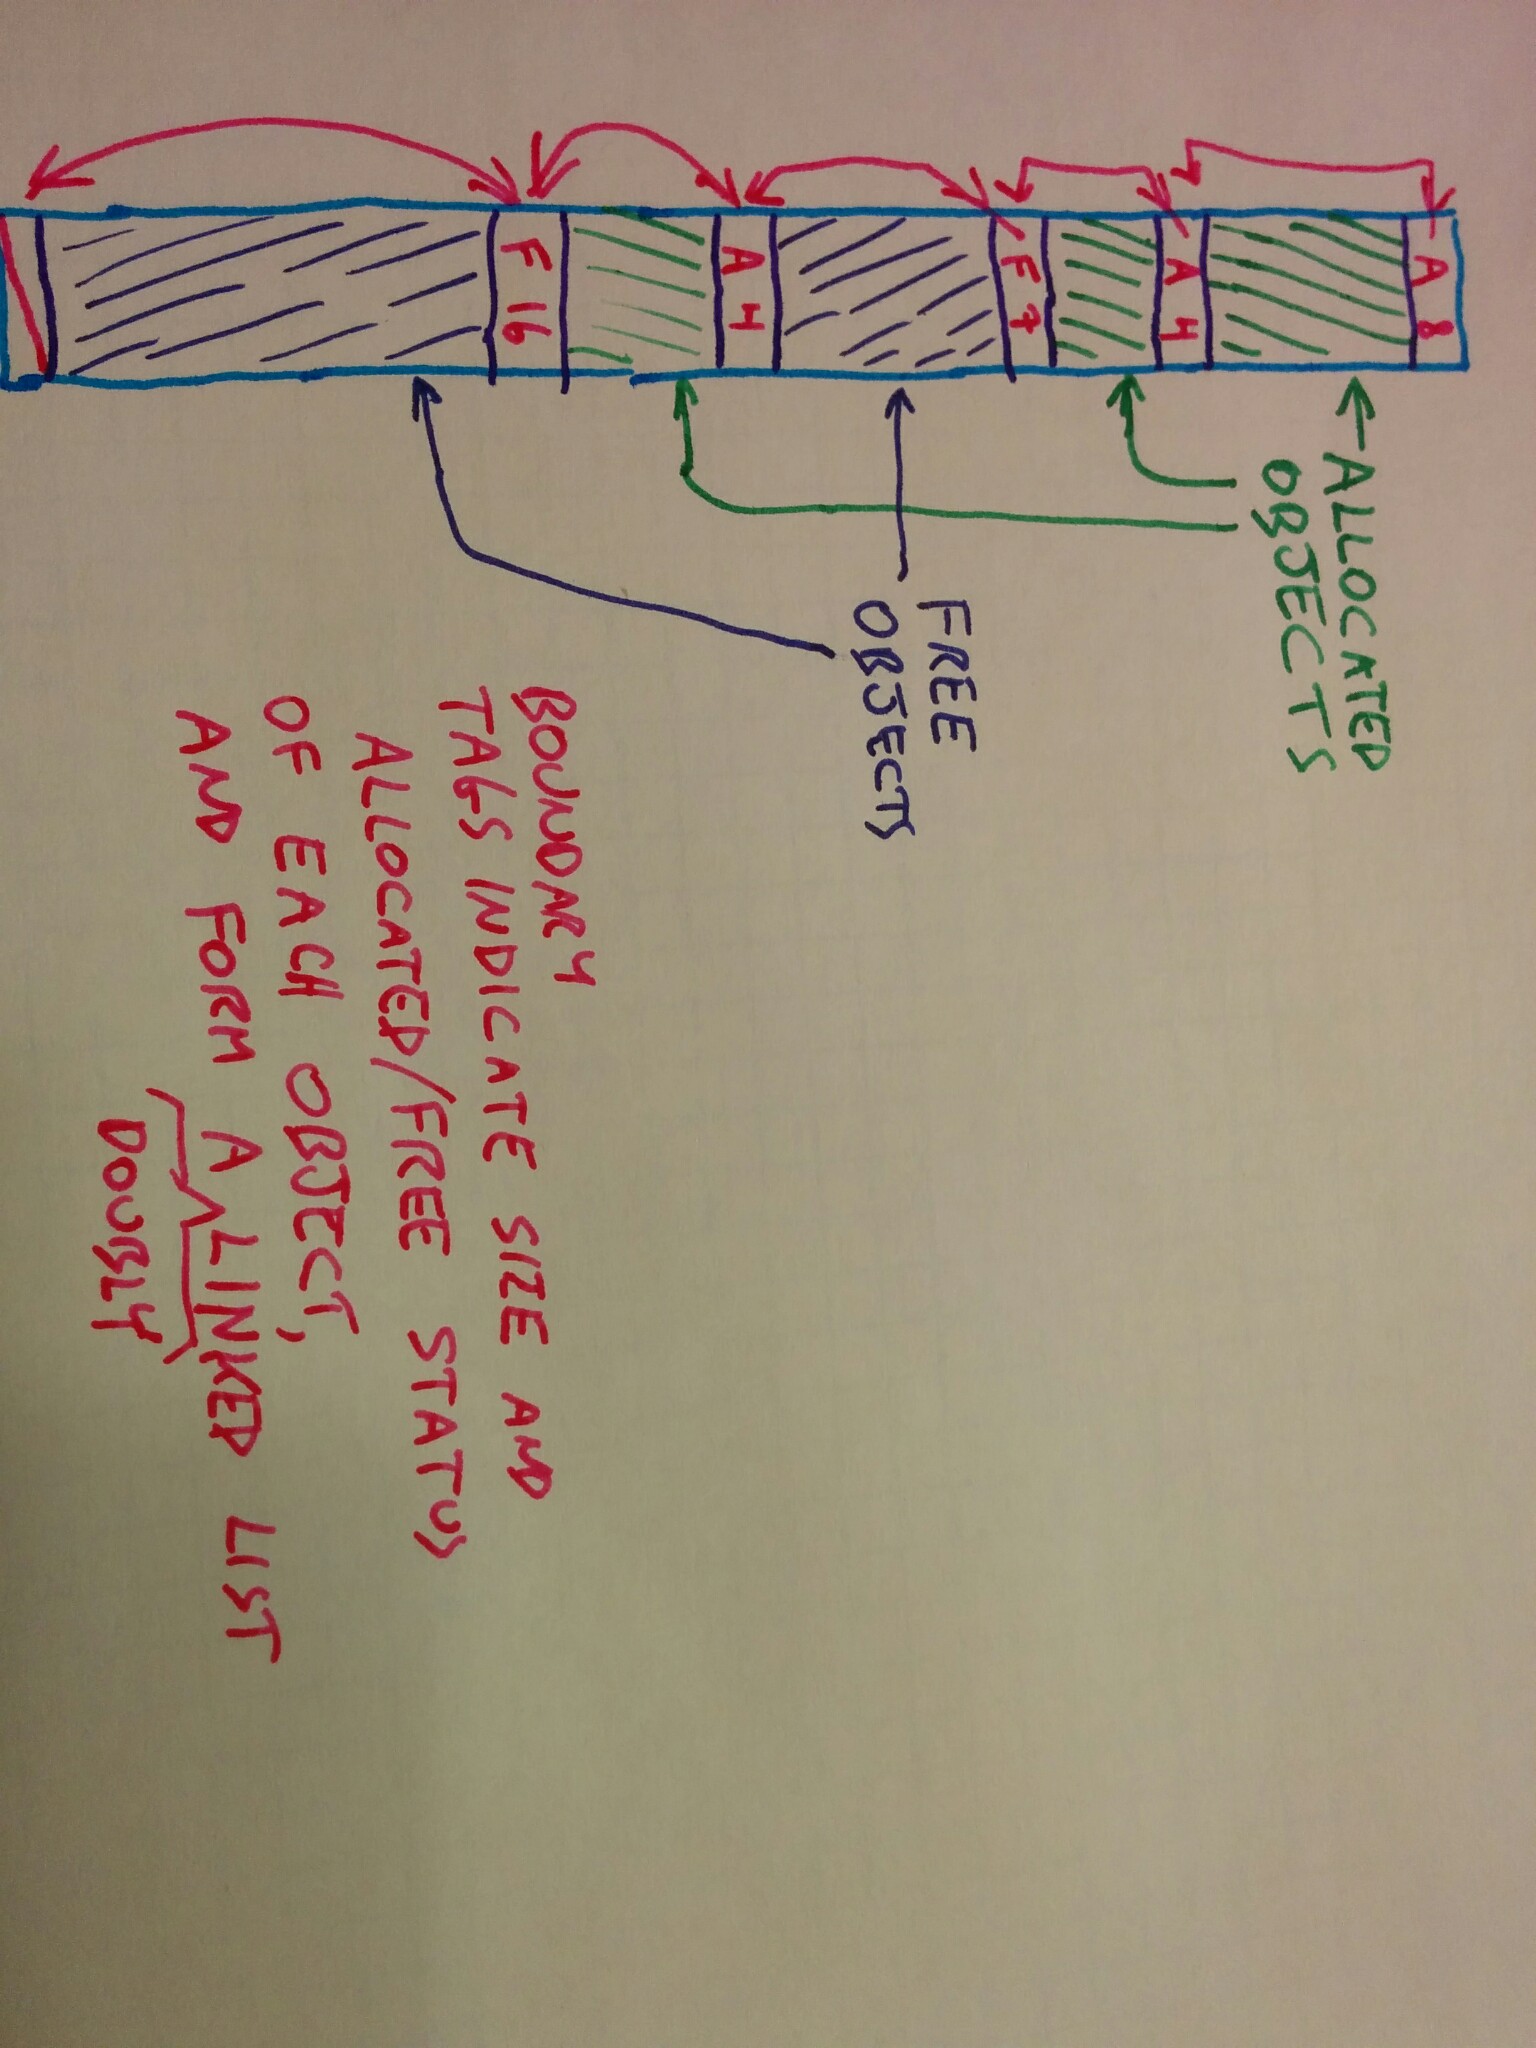 A 8
A 4
F 7
A 4
F 16
ALLOCATED
OBJECTS
FREE
OBJECTS
BOUNDARY
TAGS INDICATE SIZE AND
ALLOCATED/FREE STATUS
OF EACH OBJECT,
AND FORM A LINKED LIST
DOUBLY